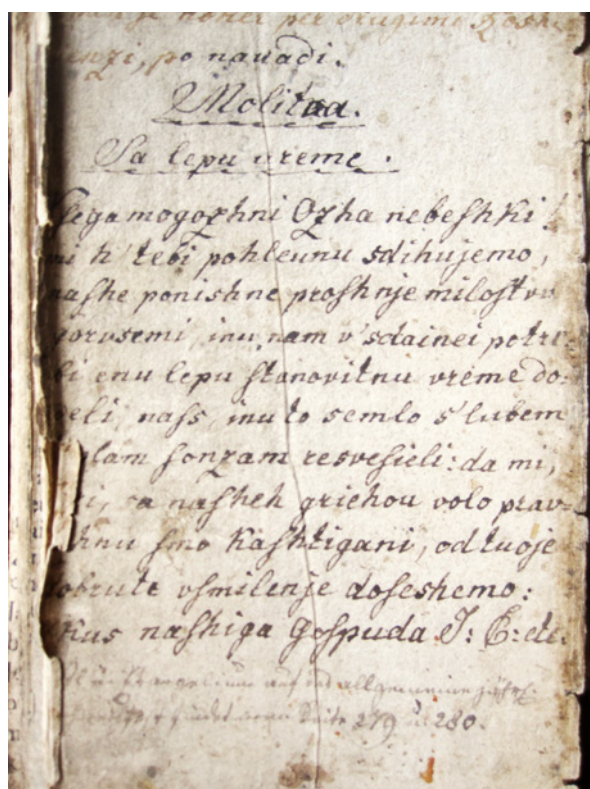 konez per drugimo
po navadi.
Molitva.
Sa lepu vreme.
Vsegamogozhni Ozha nebeſhki!
mi k' tebi pohleunu sdihujemo,
naſhe ponishne proſhnje miloſtvu
gorvsemi, inu nam v' sdainei potre-
bi enu lepu ſtanovitnu vreme do-
deli, naſs, inu to semlo s' lubem
ſonzam resveſieli: da mi,
sa naſheh griehou volo prav-
ſmo kaſhtigani, od tvoje
dobrute vſmilenje doſeshemo:
naſhiga Goſpuda J: C: etc.
Evangelium auf das allgemeine
Seite 279 u 280.